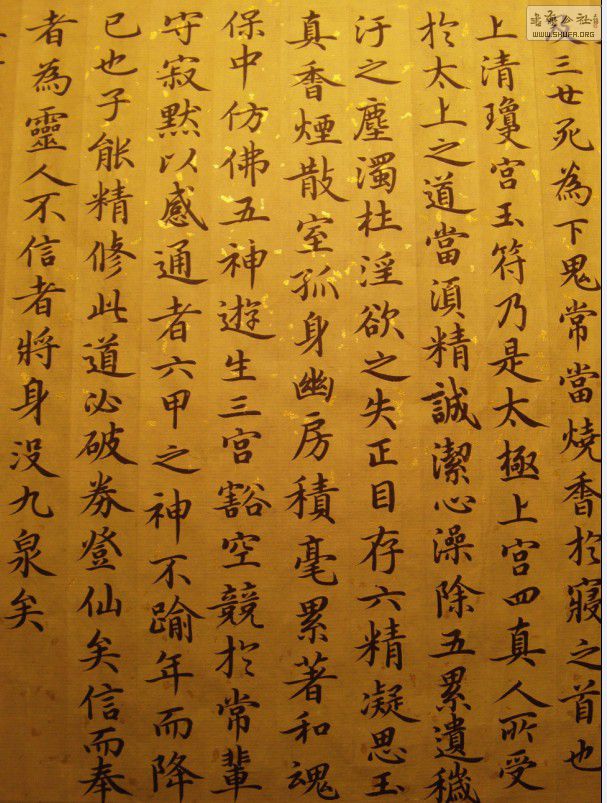 三世死為下鬼常當燒香於寢之首也
上清瓊宮玉符乃是太極上宮四真人所受
於太上之道當須精誠潔心澡除五累遺穢
汙之塵濁杜淫欲之失正目存六精凝思玉
真香煙散室孤身幽房積毫累著和魂
保中仿佛五神遊生三宮豁空競於常輩
守寂默以感通者六甲之神不踰年而降
已也子能精修此道必破券登仙矣信而奉
者為靈人不信者將身没九泉矣
書藝公社
WWW.SHUFA.ORG